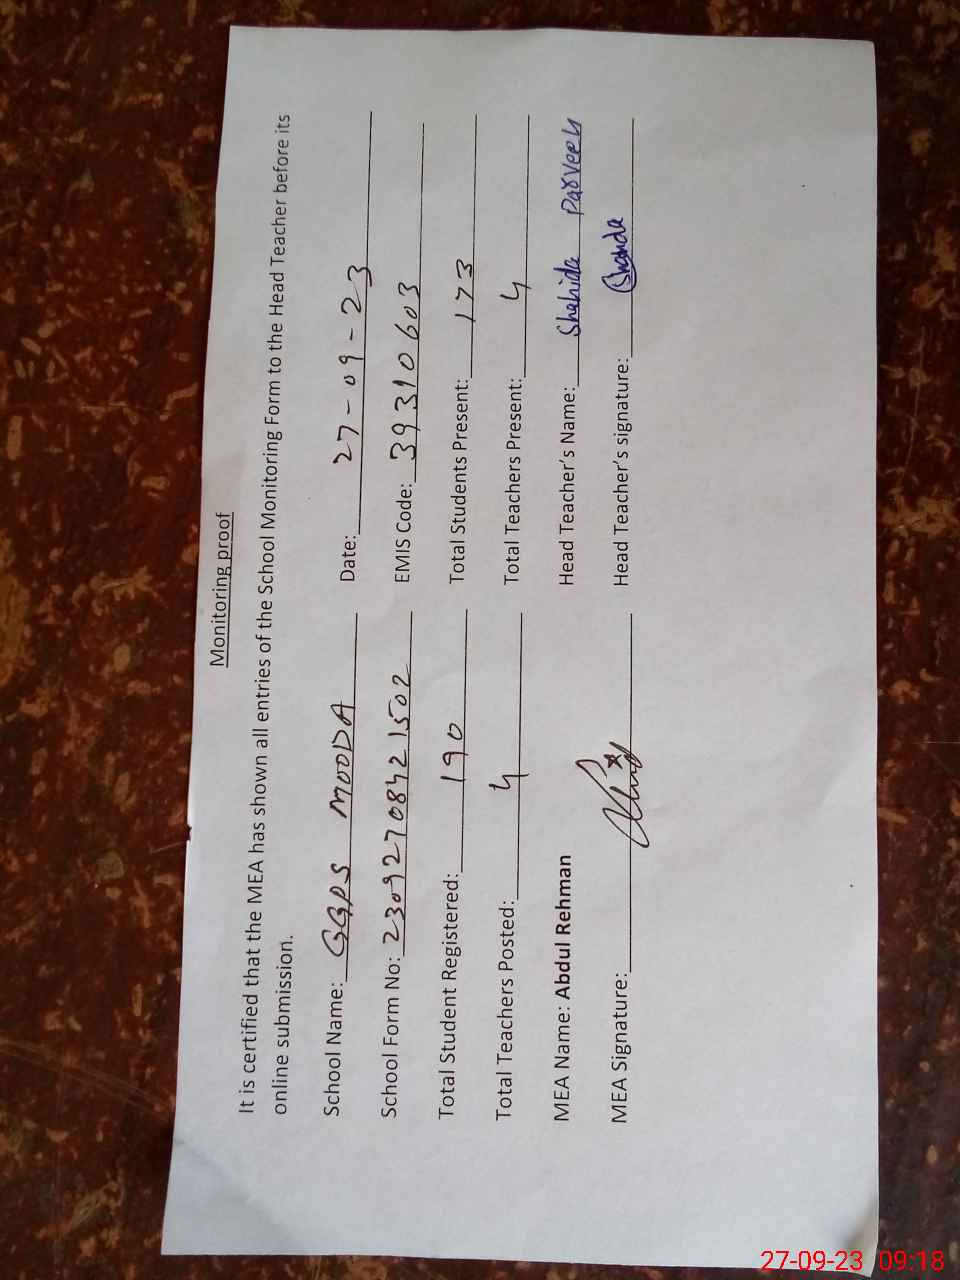 Monitoring proof
It is certified that the MEA has shown all entries of the School Monitoring Form to the Head Teacher before its
online submission.
School Name: GGPS MOODA Date: 27-09-23
School Form No: 23092708421502 EMIS Code: 39310603
Total Student Registered: 190 Total Students Present: 173
Total Teachers Posted: 4 Total Teachers Present: 4
MEA Name: Abdul Rehman Head Teacher's Name: Shahida Parveen
MEA Signature: Head Teacher's signature:
27-09-23 09:18